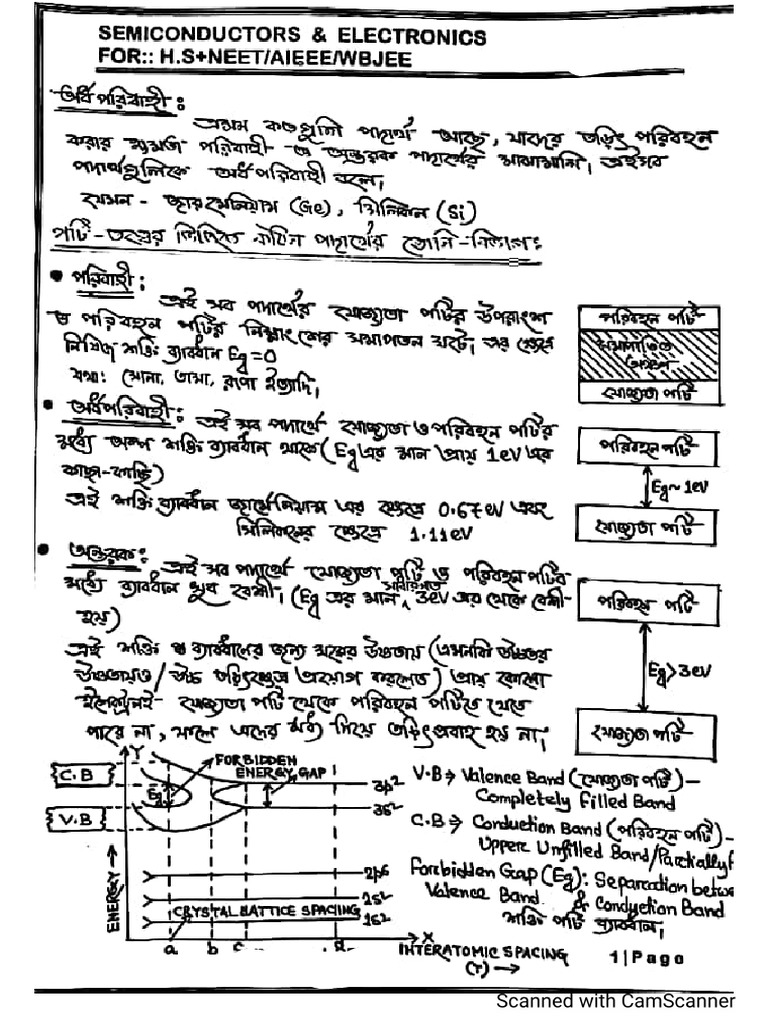 SEMICONDUCTORS & ELECTRONICS
FOR:: H.S+NEET/AIEEE/WBJEE
অর্ধপরিবাহী:
এমন কতগুলি পদার্থ আছে, যাদের তড়িৎ পরিবহন
করার ক্ষমতা পরিবাহী ও অন্তরক পদার্থের মাঝামাঝি, এইসব
পদার্থগুলিকে অর্ধপরিবাহী বলে।
যেমন - জারমেনিয়াম (Ge), সিলিকন (Si)
পটি-তত্ত্বের ভিত্তিতে কঠিন পদার্থের শ্রেণি-বিভাগ:
• পরিবাহী:
এই সব পদার্থের যোজ্যতা পটির উপরাংশ
ও পরিবহন পটির নিম্নাংশের সমাপতন ঘটে, এর ক্ষেত্রে
নিষিদ্ধ শক্তি ব্যাবধান Eg=0
যথা: সোনা, তামা, রূপা ইত্যাদি,
পরিবহন পটি
সমাপতিত
অঞ্চল
যোজ্যতা পটি
• অর্ধপরিবাহী: এই সব পদার্থে যোজ্যতা ও পরিবহন পটির
মধ্যে অল্প শক্তি ব্যাবধান থাকে (Eg এর মান প্রায় 1eV এর
কাছা-কাছি)
এই শক্তি ব্যাবধান জার্মেনিয়াম এর ক্ষেত্রে 0.67eV এবং
সিলিকনের ক্ষেত্রে 1.11eV
পরিবহন পটি
Eg~1eV
যোজ্যতা পটি
• অন্তরক: এই সব পদার্থে যোজ্যতা পটি ও পরিবহন পটির
মধ্যে ব্যাবধান খুব বেশী, (Eg এর মান সাধারণত 3eV এর থেকে বেশী
হয়)
এই শক্তি ব্যাবধানের জন্য ঘরের উষ্ণতায় (এমনকি উচ্চতর
উষ্ণতায়ও / উচ্চ তড়িৎক্ষেত্র প্রয়োগ করলেও) প্রায় কোনো
ইলেকট্রনই যোজ্যতা পটি থেকে পরিবহন পটিতে যেতে
পারে না, ফলে এদের মধ্য দিয়ে তড়িৎপ্রবাহ হয় না।
পরিবহন পটি
Eg>3eV
যোজ্যতা পটি
Y
FORBIDDEN
ENERGY GAP
C.B
Eg
V.B
3p2
3s2
2p6
2s2
1s2
ENERGY →
CRYSTAL LATTICE SPACING
a b c d X
INTERATOMIC SPACING
(r) →
V.B → Valence Band (যোজ্যতা পটি) -
Completely Filled Band
C.B → Conduction Band (পরিবহন পটি) -
Upper Unfilled Band/Partially f
Forbidden Gap (Eg): Separation betwe
Valence Band & Conduction Band
শক্তি পটি ব্যাবধান,
1|Page
Scanned with CamScanner